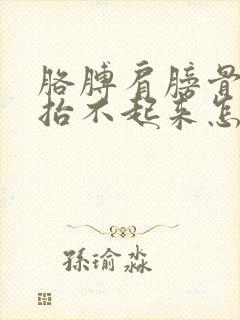 胳膊肩膀骨
抬不起来怎
孫瑜淼